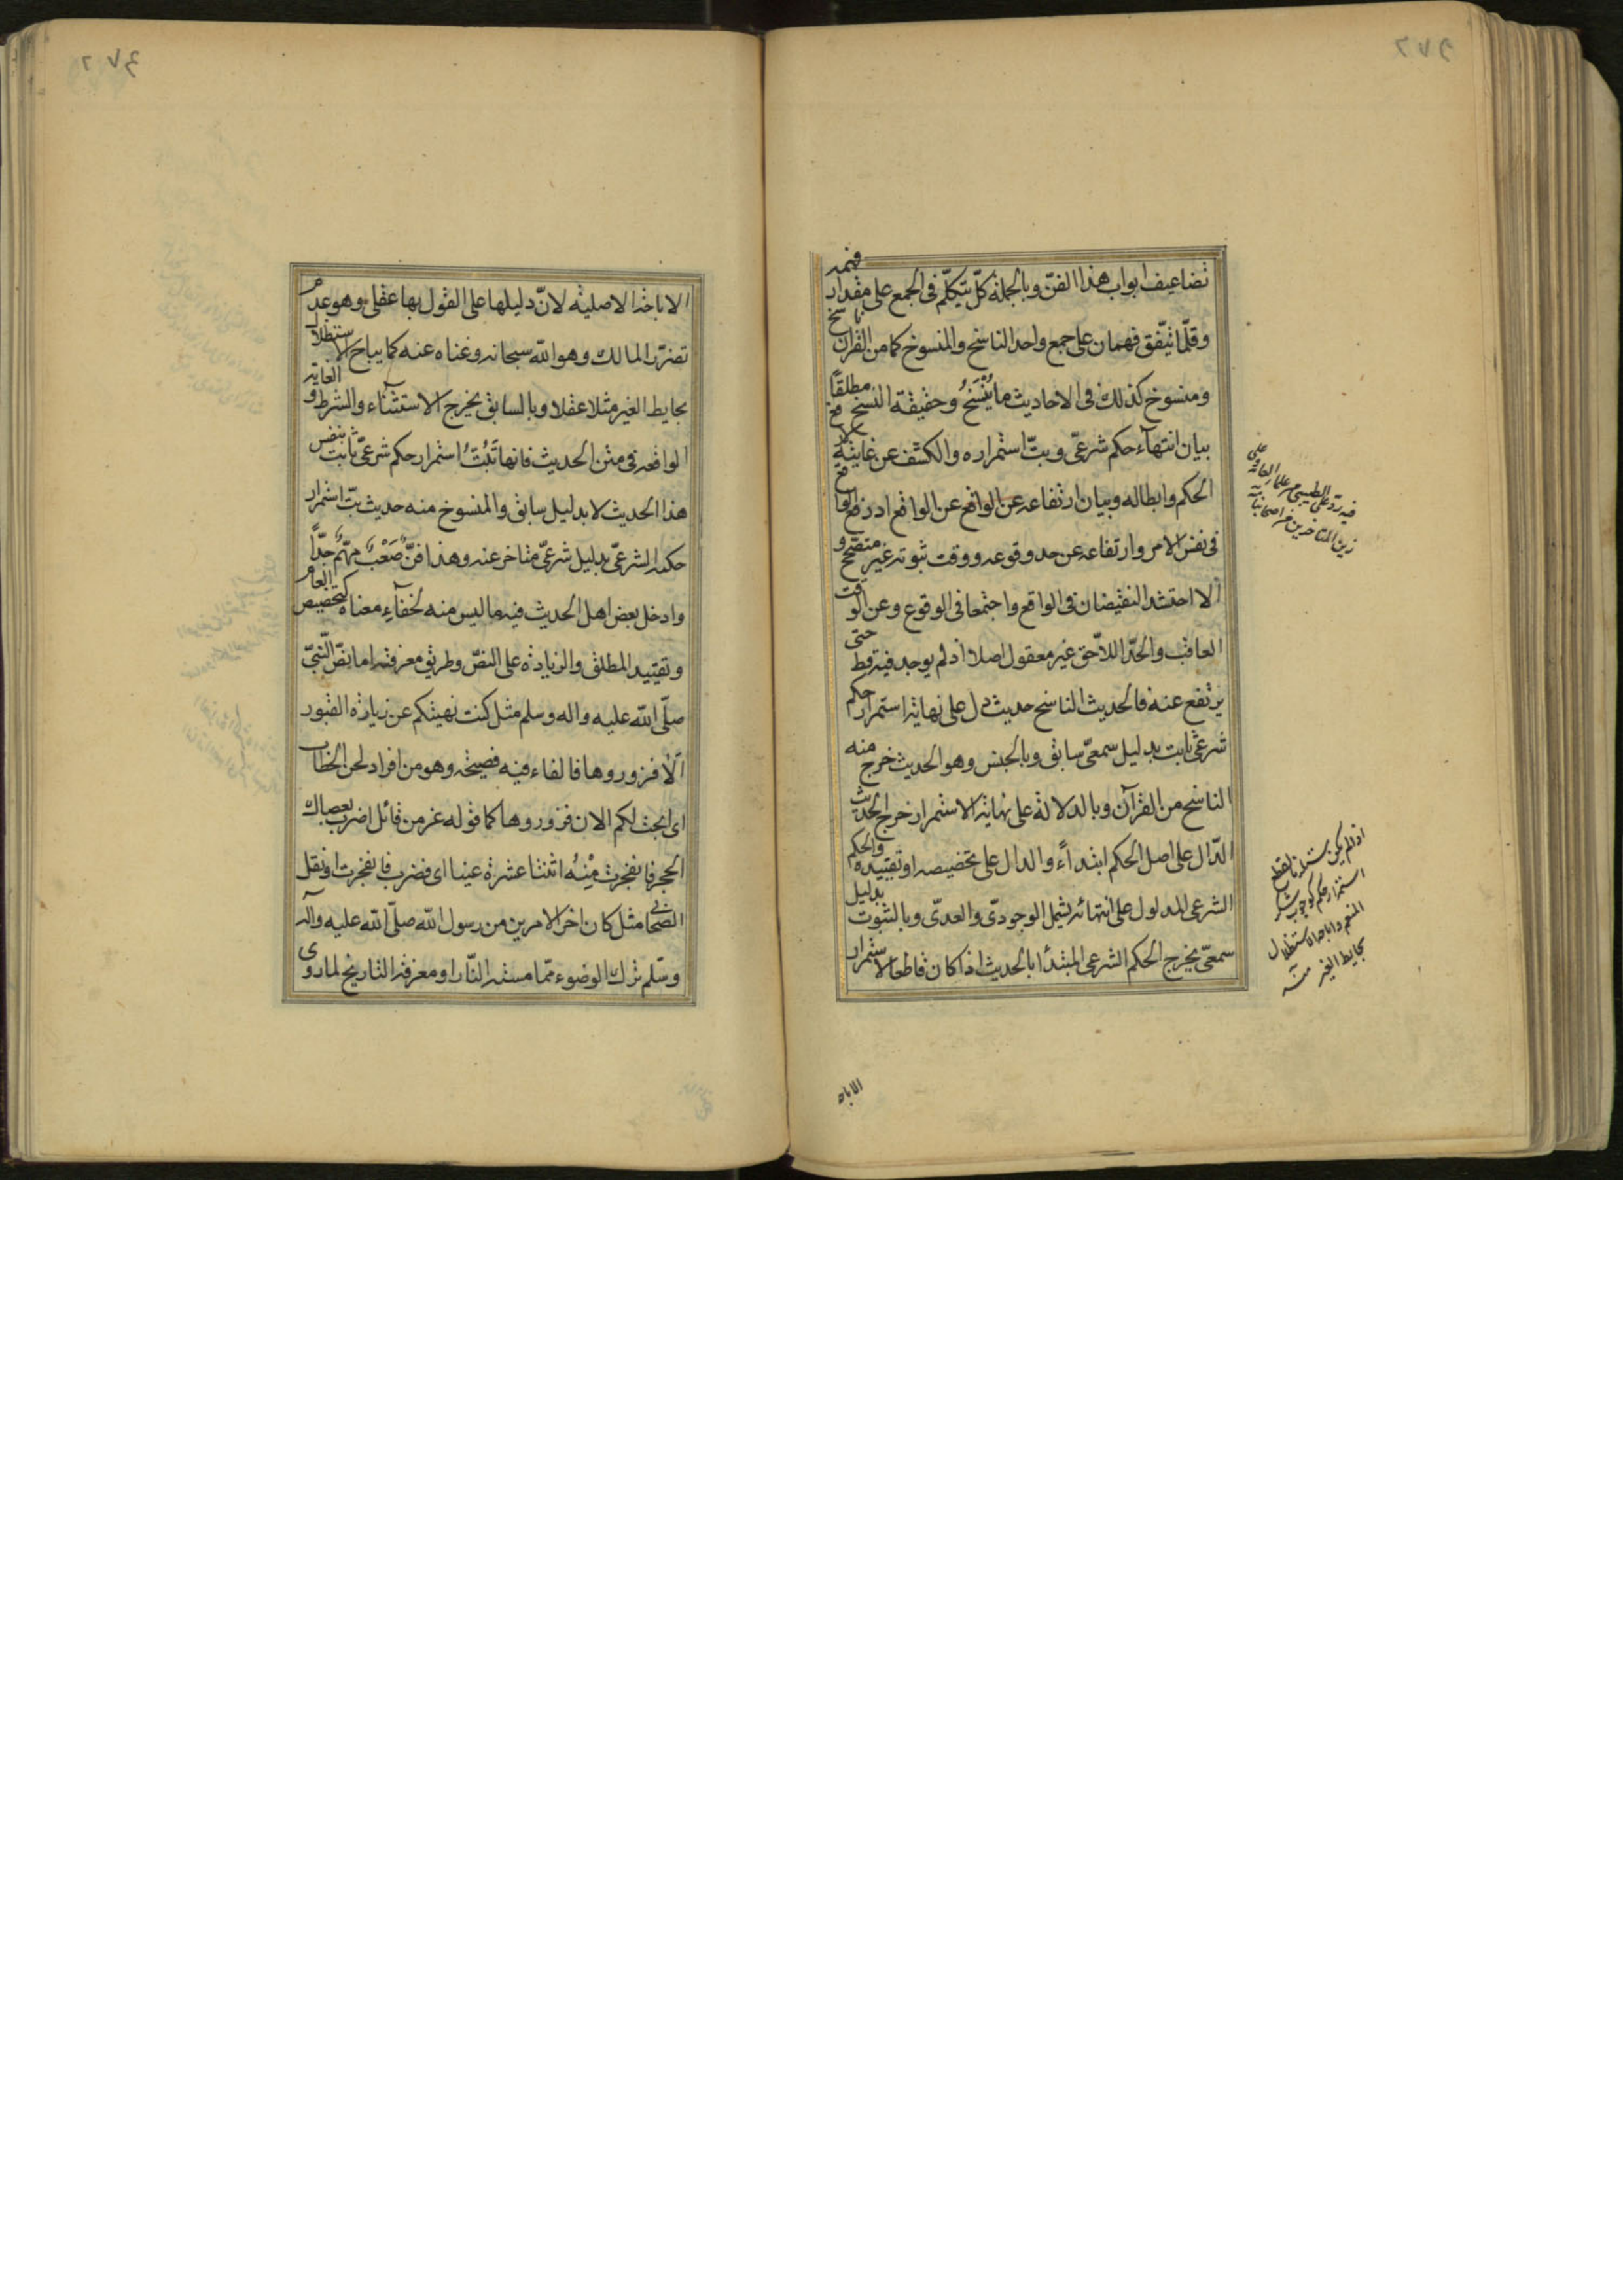 تضاعيف ابواب هذا الفنّ وبالجملة كلّ يتكلّم فى الجمع على مقدار فهمه
وقلّما يتّفق فهمان على جمع واحد الناسخ والمنسوخ كما من القرآن ناسخ
ومنسوخ كذلك فى الاحاديث ما يُنْسَخُ وحقيقة النسخ مطلقًا
بيان انتهاء حكم شرعىّ وبتّ استمراره والكشف عن غايته لا رفع
الحكم وابطاله وبيان ارتفاعه عن الواقع عن الواقع اذ رفع الواقع
فى نفس الامر وارتفاعه عن حد وقوعه ووقت ثبوته غير متصحّح و
الا احتشد النقيضان فى الواقع واجتمعا فى الوقوع وعن الوقت
العاقب والحدّ اللاحق غير معقول اصلا اذ لم يوجد فيه قط حتى
يرتفع عنه فالحديث الناسخ حديث دل على نهاية استمرار حكم
شرعىّ ثابت بدليل سمعىّ سابق وبالجنس وهو الحديث خرج منه
الناسخ من القرآن وبالدلالة على نهاية الاستمرار خرج الحديث
الدّال على اصل الحكم ابتداءً والدال على تخصيصه او تقييده والحكم
الشرعى المدلول على انتهائه يشمل الوجودىّ والعدمىّ وبالثبوت بدليل
سمعىّ يخرج الحكم الشرعى المبتدأ بالحديث اذا كان قاطعا لاستمرار
فيه ردّ على الطيبى من علماء العامّة وعلى
زين المتأخرين من اصحابنا
اذا لم يكن
استمرار حكم كوجوب شكر
المنعم واباحة الاستظلال
بحايط الغير منه
الاباحة
الاباحة الاصلية لانّ دليلها على القول بها عقلى وهو عدم
تضرّر المالك وهو اللّه سبحانه وغناه عنه كما يباح الاستظلال
بحايط الغير مثلا عقلا وبالسابق يخرج الاستثناء والشرط والغاية
الواقعة فى متن الحديث فانها تَبُتُّ استمرار حكم شرعىّ ثابت بنفس
هذا الحديث لا بدليل سابق والمنسوخ منه حديث بتّ استمرار
حكمه الشرعىّ بدليل شرعىّ متاخر عنه وهذا فنٌّ صَعْبٌ مهمّ جدًّا
وادخل بعض اهل الحديث فيه ما ليس منه لخفاءِ معناه كتخصيص العام
وتقييد المطلق والزيادة على النصّ وطريق معرفته اما نصّ النّبىّ
صلّى اللّه عليه واله وسلم مثل كنت نهيتكم عن زيارة القبور
ألا فزوروها فالفاء فيه فصيحة وهو من افراد لحن الخطاب
اى ابحت لكم الان فزوروها كما قوله عز من قائل اضرب بعصاك
الحجر فانفجرت مِنْهُ اثنتا عشرة عينا اى فضرب فانفجرت او نقل
الصّحابىّ مثل كان اخر الامرين من رسول اللّه صلّى اللّه عليه وآله
وسّلم ترك الوضوء ممّا مسته النّار او معرفة التاريخ لما روى